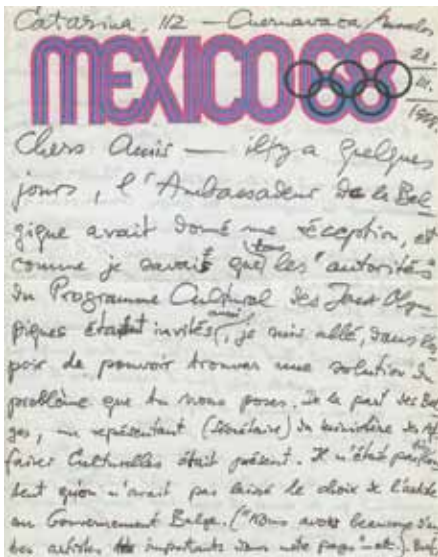 Catarina, 112 — Cuernavaca/Morelos
21.
III.
MEXICO68
Chers Amis — il y a quelques
jours, l'Ambassadeur de la Bel
gique avait donné une réception, et
comme je savais que tous les "autorités"
du Programme Cultural des Jeux Olym
piques étaient invités, aussi je suis allé, dans l'es
poir de pouvoir trouver une solution du
problème que tu nous poses. De la part des Bel
ges, un représentant (secrétaire) du ministère des Af
faires Culturelles était présent. Il n'était pas
tent qu'on n'avait pas laissé le choix de l'artiste
au Gouvernement Belge. ("Nous avons beaucoup d'au
tres artistes importants dans notre pays" etc.).